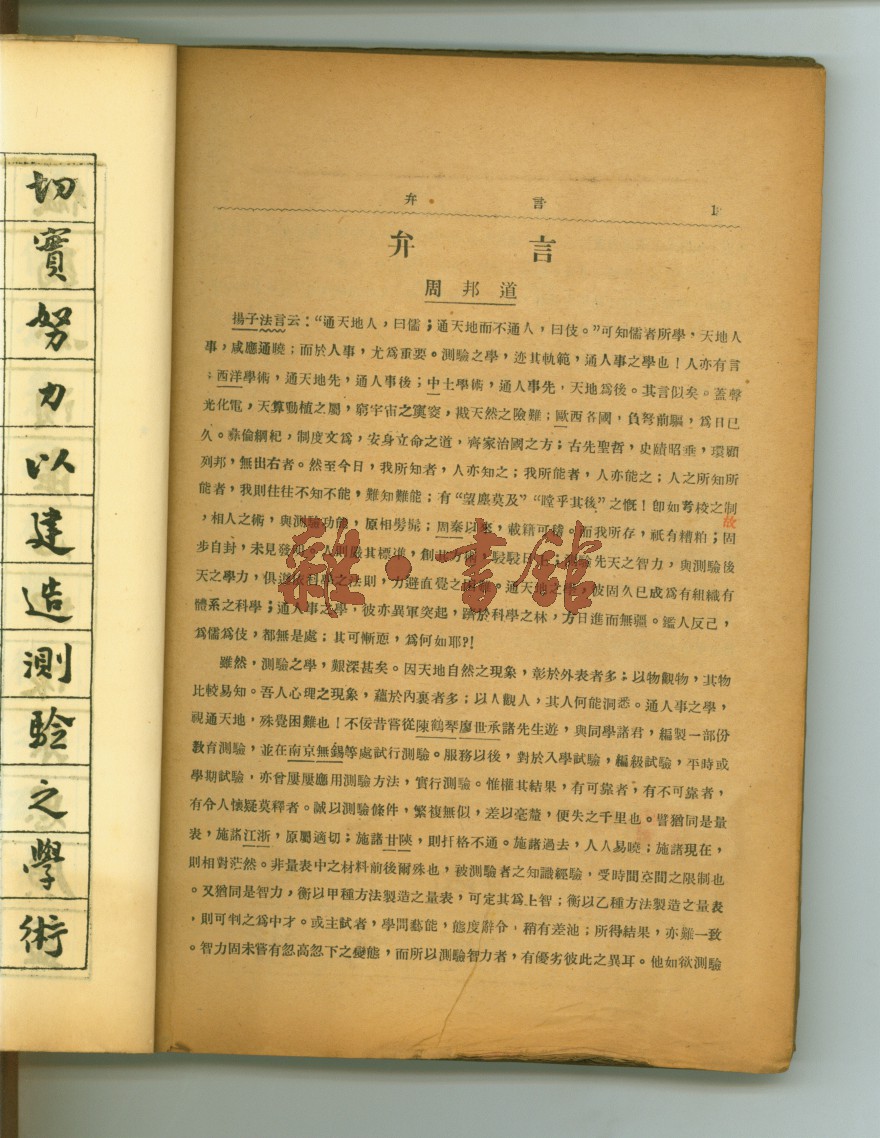 切實努力以建造測驗之學術
弁言 1
弁言
周邦道
揚子法言云：“通天地人，曰儒；通天地而不通人，曰伎。”可知儒者所學，天地人
事，咸應通曉；而於人事，尤爲重要。測驗之學，迹其軌範，通人事之學也！人亦有言
；西洋學術，通天地先，通人事後；中土學術，通人事先，天地爲後。其言似矣。蓋聲
光化電，天算動植之屬，窮宇宙之窔，戡天然之險難；歐西各國，負弩前驅，爲日已
久。彝倫綱紀，制度文爲，安身立命之道，齊家治國之方；古先聖哲，史蹟昭垂，環顧
列邦，無出右者。然至今日，我所知者，人亦知之；我所能者，人亦能之；人之所知所
能者，我則往往不知不能，難知難能；有“望塵莫及”“瞠乎其後”之慨！卽如考校之制
，相人之術，與測驗功能，原相髣髴；周秦以來，載籍可稽。而我所存，祇有糟粕；固
故
步自封，未見發明。人則嚴其標準，創其方術，駸駸日上；測驗先天之智力，與測驗後
天之學力，俱遵依科學之法則，力避直覺之困難。通天地之學，彼固久已成爲有組織有
體系之科學；通人事之學，彼亦異軍突起，躋於科學之林，方日進而無疆。鑑人反己，
爲儒爲伎，都無是處；其可慚恧，爲何如耶？！
雖然，測驗之學，艱深甚矣。因天地自然之現象，彰於外表者多；以物觀物，其物
比較易知。吾人心理之現象，蘊於內裏者多；以人觀人，其人何能洞悉。通人事之學，
視通天地，殊覺困難也！不佞昔嘗從陳鶴琴廖世承諸先生遊，與同學諸君，編製一部份
教育測驗，並在南京無錫等處試行測驗。服務以後，對於入學試驗，編級試驗，平時或
學期試驗，亦曾屢屢應用測驗方法，實行測驗。惟權其結果，有可靠者，有不可靠者，
有令人懷疑莫釋者。誠以測驗條件，繁複無似，差以毫釐，便失之千里也。譬猶同是量
表，施諸江浙，原屬適切；施諸甘陝，則扞格不通。施諸過去，人人易曉；施諸現在，
則相對茫然。非量表中之材料前後爾殊也，被測驗者之知識經驗，受時間空間之限制也
。又猶同是智力，衡以甲種方法製造之量表，可定其爲上智；衡以乙種方法製造之量表
，則可判之爲中才。或主試者，學問藝能，態度辭令，稍有差池；所得結果，亦難一致
。智力固未嘗有忽高忽下之變態，而所以測驗智力者，有優劣彼此之異耳。他如欲測驗
雜·書館